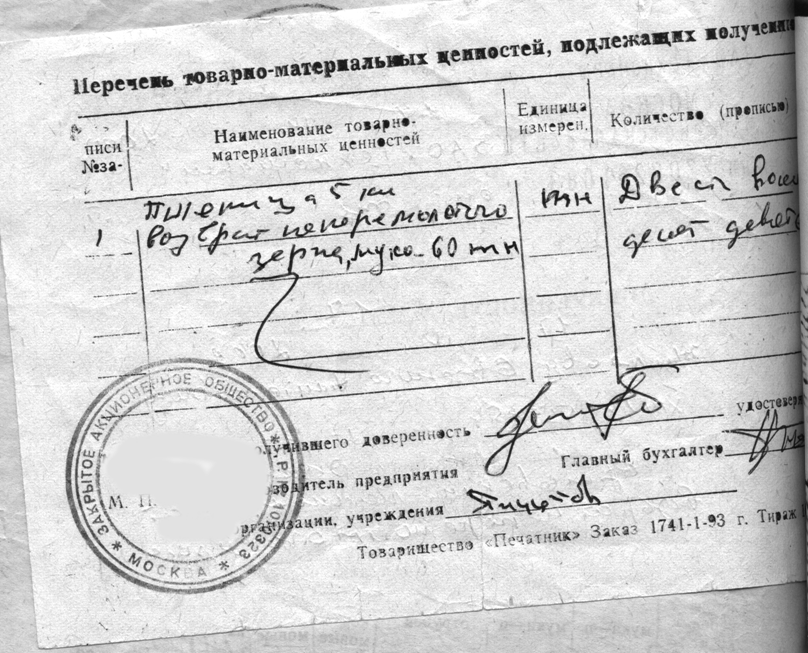 Перечень товарно-материальных ценностей, подлежащих получению
№за-
писи
Наименование товарно-
материальных ценностей
Единица
измерен.
Количество (прописью)
1
Пшеница 5 кл
тн
Двести восем
возврат неперемолотого
десят девять
зерна, мука 60 тн
ЗАКРЫТОЕ АКЦИОНЕРНОЕ ОБЩЕСТВО
МОСКВА
М. П.
олучившего доверенность
удостоверя
водитель предприятия
Главный бухгалтер
рганизации, учреждения
Товарищество «Печатник» Заказ 1741-1-93 г. Тираж